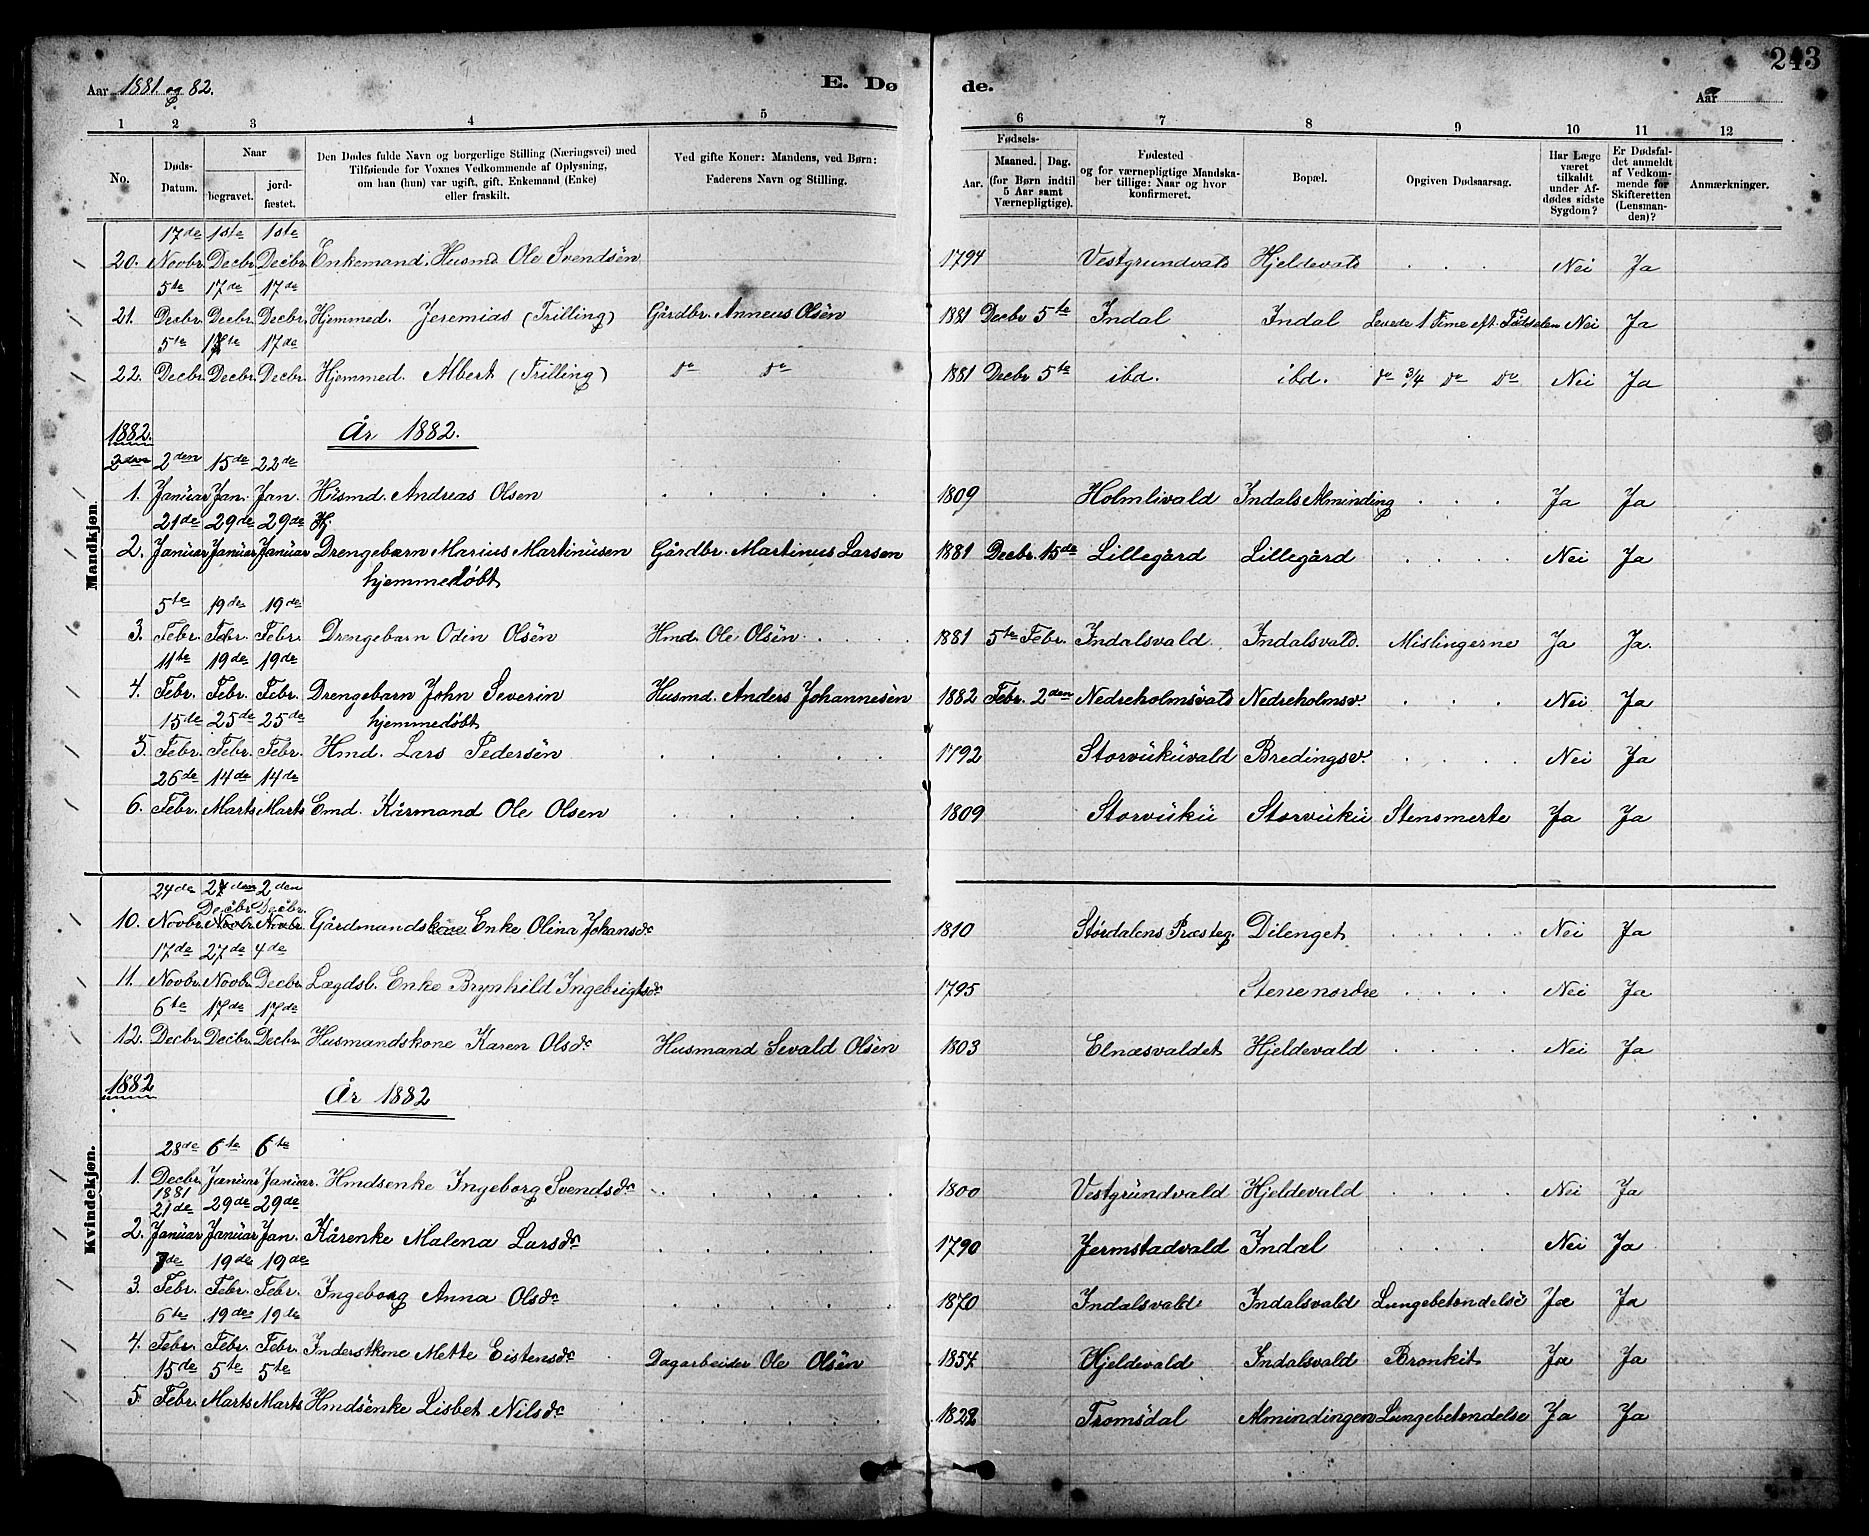 243
Aar 1881 og 82. E. Dø de. Aar
1 2 3 4 5 6 7 8 9 10 11 12
No. Døds-Datum. Naar begravet. jordfæstet. Den Dødes fulde Navn og borgerlige Stilling (Næringsvei) med Tilføiende for Voxnes Vedkommende af Oplysning, om han (hun) var ugift, gift, Enkemand (Enke) eller fraskilt. Ved gifte Koner: Mandens, ved Børn: Faderens Navn og Stilling. Fødsels- Aar. Maaned. Dag. (for Børn indtil 5 Aar samt Værnepligtige). Fødested og for værnepligtige Mandskaber tillige: Naar og hvor konfirmeret. Bopæl. Opgiven Dødsaarsag. Har Læge været tilkaldt under Afdødes sidste Sygdom? Er Dødsfaldet anmeldt af Vedkommende for Skifteretten (Lensmanden)? Anmærkninger.
Mandkjøn.
17de 1ste 1ste
20. Novbr. Decbr. Decbr. Enkemand. Husmd. Ole Svendsen 1794 Vestgrundvald Hjeldevald . . . Nei Ja
5te 17de 17de
21. Decbr. Decbr. Decbr. Hjemmed. Jeremias (Trilling) Gårdbr. Anneus Olsen 1881 Decbr 5te Indal Indal Levede 1 Time eft. Fødselen Nei Ja
5te 17te 17de
22. Decbr. Decbr. Decbr. Hjemmed. Albert (Trilling) do do 1881 Decbr 5te ibd. ibd. do 3/4 do do Nei Ja
1882. År 1882.
2den 2den 15de 22de
1. Januar Jan. Jan. Husmd. Andreas Olsen . . . . . 1809 Holmlivald Indals Alminding . . . Ja Ja
21de 29de 29de Hj
2. Januar Januar Januar Drengebarn Marius Martinusen Gårdbr. Martinus Larsen 1881 Decbr. 15de Lillegård Lillegård . . . . Nei Ja
hjemmedøbt
5te 19de 19de
3. Febr. Febr. Febr. Drengebarn Odin Olsen Hmd. Ole Olsen . . . . 1881 5te Febr. Indalsvald. Indalsvald. Mislingerne Ja Ja.
11te 19de 19de
4. Febr. Febr. Febr. Drengebarn John Severin Husmd. Anders Johannesen 1882 Febr. 2den Nedreholmsvald Nedreholmsv. . . . . Nei Ja
15de 25de 25de hjemmedøbt
5. Febr. Febr. Febr. Hmd. Lars Pedersen . . . . . 1792 Storvukuvald Bredingsv. . . . . Nei Ja
26de 14de 14de
6. Febr. Marts Marts Emd. Kårmand Ole Olsen . . . . 1809 Storvuku Storvuku Stensmerte Ja Ja
Kvindekjøn.
24de 27den 2den
Decbr Decbr.
10. Novbr. Novbr. Novbr. Gårdmandskone Enke Olina Johansdr 1810 Størdalens Præsteg. Dilenget . . . . . . Nei Ja
17de 27de 4de
11. Novbr. Novbr. Decbr. Lægdsl. Enke Brynhild Ingebrigtsdr 1795 Stene nordre . . . . . Nei Ja
6te 17de 17de
12. Decbr. Decbr. Decbr. Husmandskone Karen Olsdr Husmand Sevald Olsen 1803 Elnæsvaldet Hjeldevald . . . . Nei Ja
1882 År 1882
28de 6te 6te
1. Decbr. Januar Januar. Hmdsenke Ingeborg Svendsdr . . . . . 1800 Vestgrundvald Hjeldevald . . . . Nei Ja
1881
21de 29de 29de
2. Januar Januar Jan. Kårenke Malena Larsdr . . . . . 1790 Jermstadvald Indal . . . Nei Ja
3de 19de 19de
3. Febr. Febr. Febr. Ingeborg Anna Olsdr . . . . . 1870 Indalsvald Indalsvald Lungebetendelse Ja Ja
6te 19de 19de
4. Febr. Febr. Febr. Inderstkone Mette Eistensdr Dagarbeider Ole Olsen 1854 Hjeldevald Indalsvald Bronkit Ja Ja
15de 5te 5te
5. Febr. Marts Marts Hmdsenke Lisbet Nilsdr . . . . . 1822 Tromsdal Almindingen Lungebetendelse Ja Ja